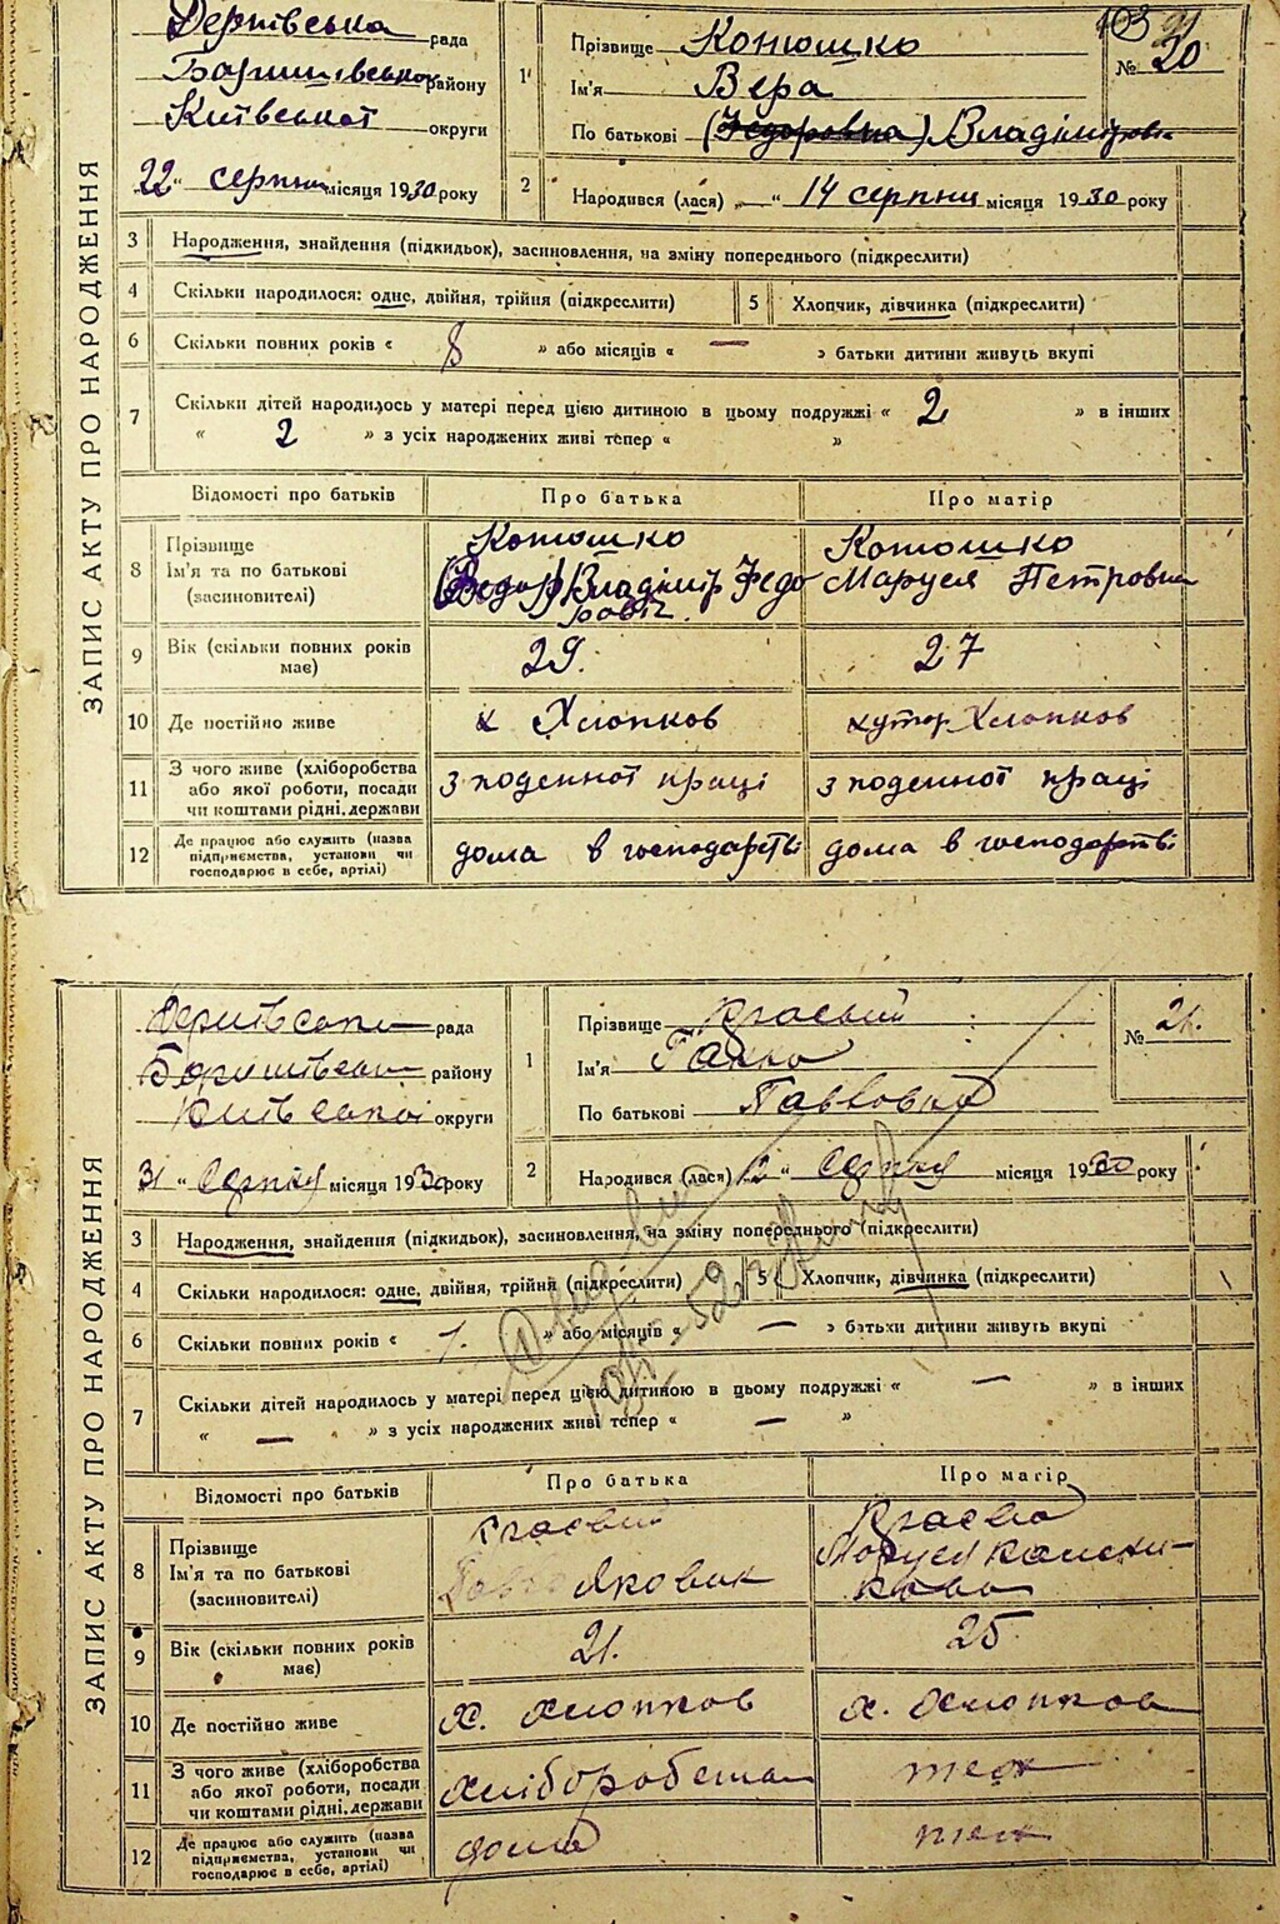 ЗАПИС АКТУ ПРО НАРОДЖЕННЯ
Дернівська рада
Баришівського району
Київської округи
22 " серпня місяця 1930 року
1 Прізвище Котюшко
Ім'я Вера
По батькові (Федоровна) Владімировна
103
№ 20
2 Народився (лася) „—“ 14 серпня місяця 1930 року
3 Народження, знайдення (підкидьок), засиновлення, на зміну попереднього (підкреслити)
4 Скільки народилося: одне, двійня, трійня (підкреслити) 5 Хлопчик, дівчинка (підкреслити)
6 Скільки повних років « 8 » або місяців « — » батьки дитини живуть вкупі
7 Скільки дітей народилось у матері перед цією дитиною в цьому подружжі « 2 » в інших
« 2 » з усіх народжених живі тепер « »
Відомості про батьків Про батька Про матір
8 Прізвище Котюшко Котюшко
Ім'я та по батькові (Федор) Владімір Федо Маруся Петровна
(засиновителі) ровіч.
9 Вік (скільки повних років має) 29. 27
10 Де постійно живе х Хлопков хутор Хлопков
11 З чого живе (хліборобства або якої роботи, посади чи коштами рідні, держави з поденної праці з поденної праці
12 Де працює або служить (назва підприємства, установи чи господарює в себе, артілі) дома в господарстві дома в господарстві
ЗАПИС АКТУ ПРО НАРОДЖЕННЯ
рада
району
Київської округи
31 " Серпня місяця 1930 року
1 Прізвище Краєвий
Ім'я Галка
По батькові Павловна
№ 21.
2 Народився (лася) 12 " Серпня місяця 1930 року
3 Народження, знайдення (підкидьок), засиновлення, на зміну попереднього (підкреслити)
4 Скільки народилося: одне, двійня, трійня (підкреслити) 5 Хлопчик, дівчинка (підкреслити)
6 Скільки повних років « 1. » або місяців « — » батьки дитини живуть вкупі
7 Скільки дітей народилось у матері перед цією дитиною в цьому подружжі « — » в інших
« — » з усіх народжених живі тепер « — »
Відомості про батьків Про батька Про матір
8 Прізвище Краєвий Краєва
Ім'я та по батькові Павло Якович Маруся
(засиновителі)
9 Вік (скільки повних років має) 21. 25
10 Де постійно живе х. Хлопков х. Хлопков
11 З чого живе (хліборобства або якої роботи, посади чи коштами рідні, держави хліборобства теж
12 Де працює або служить (назва підприємства, установи чи господарює в себе, артілі) дома теж